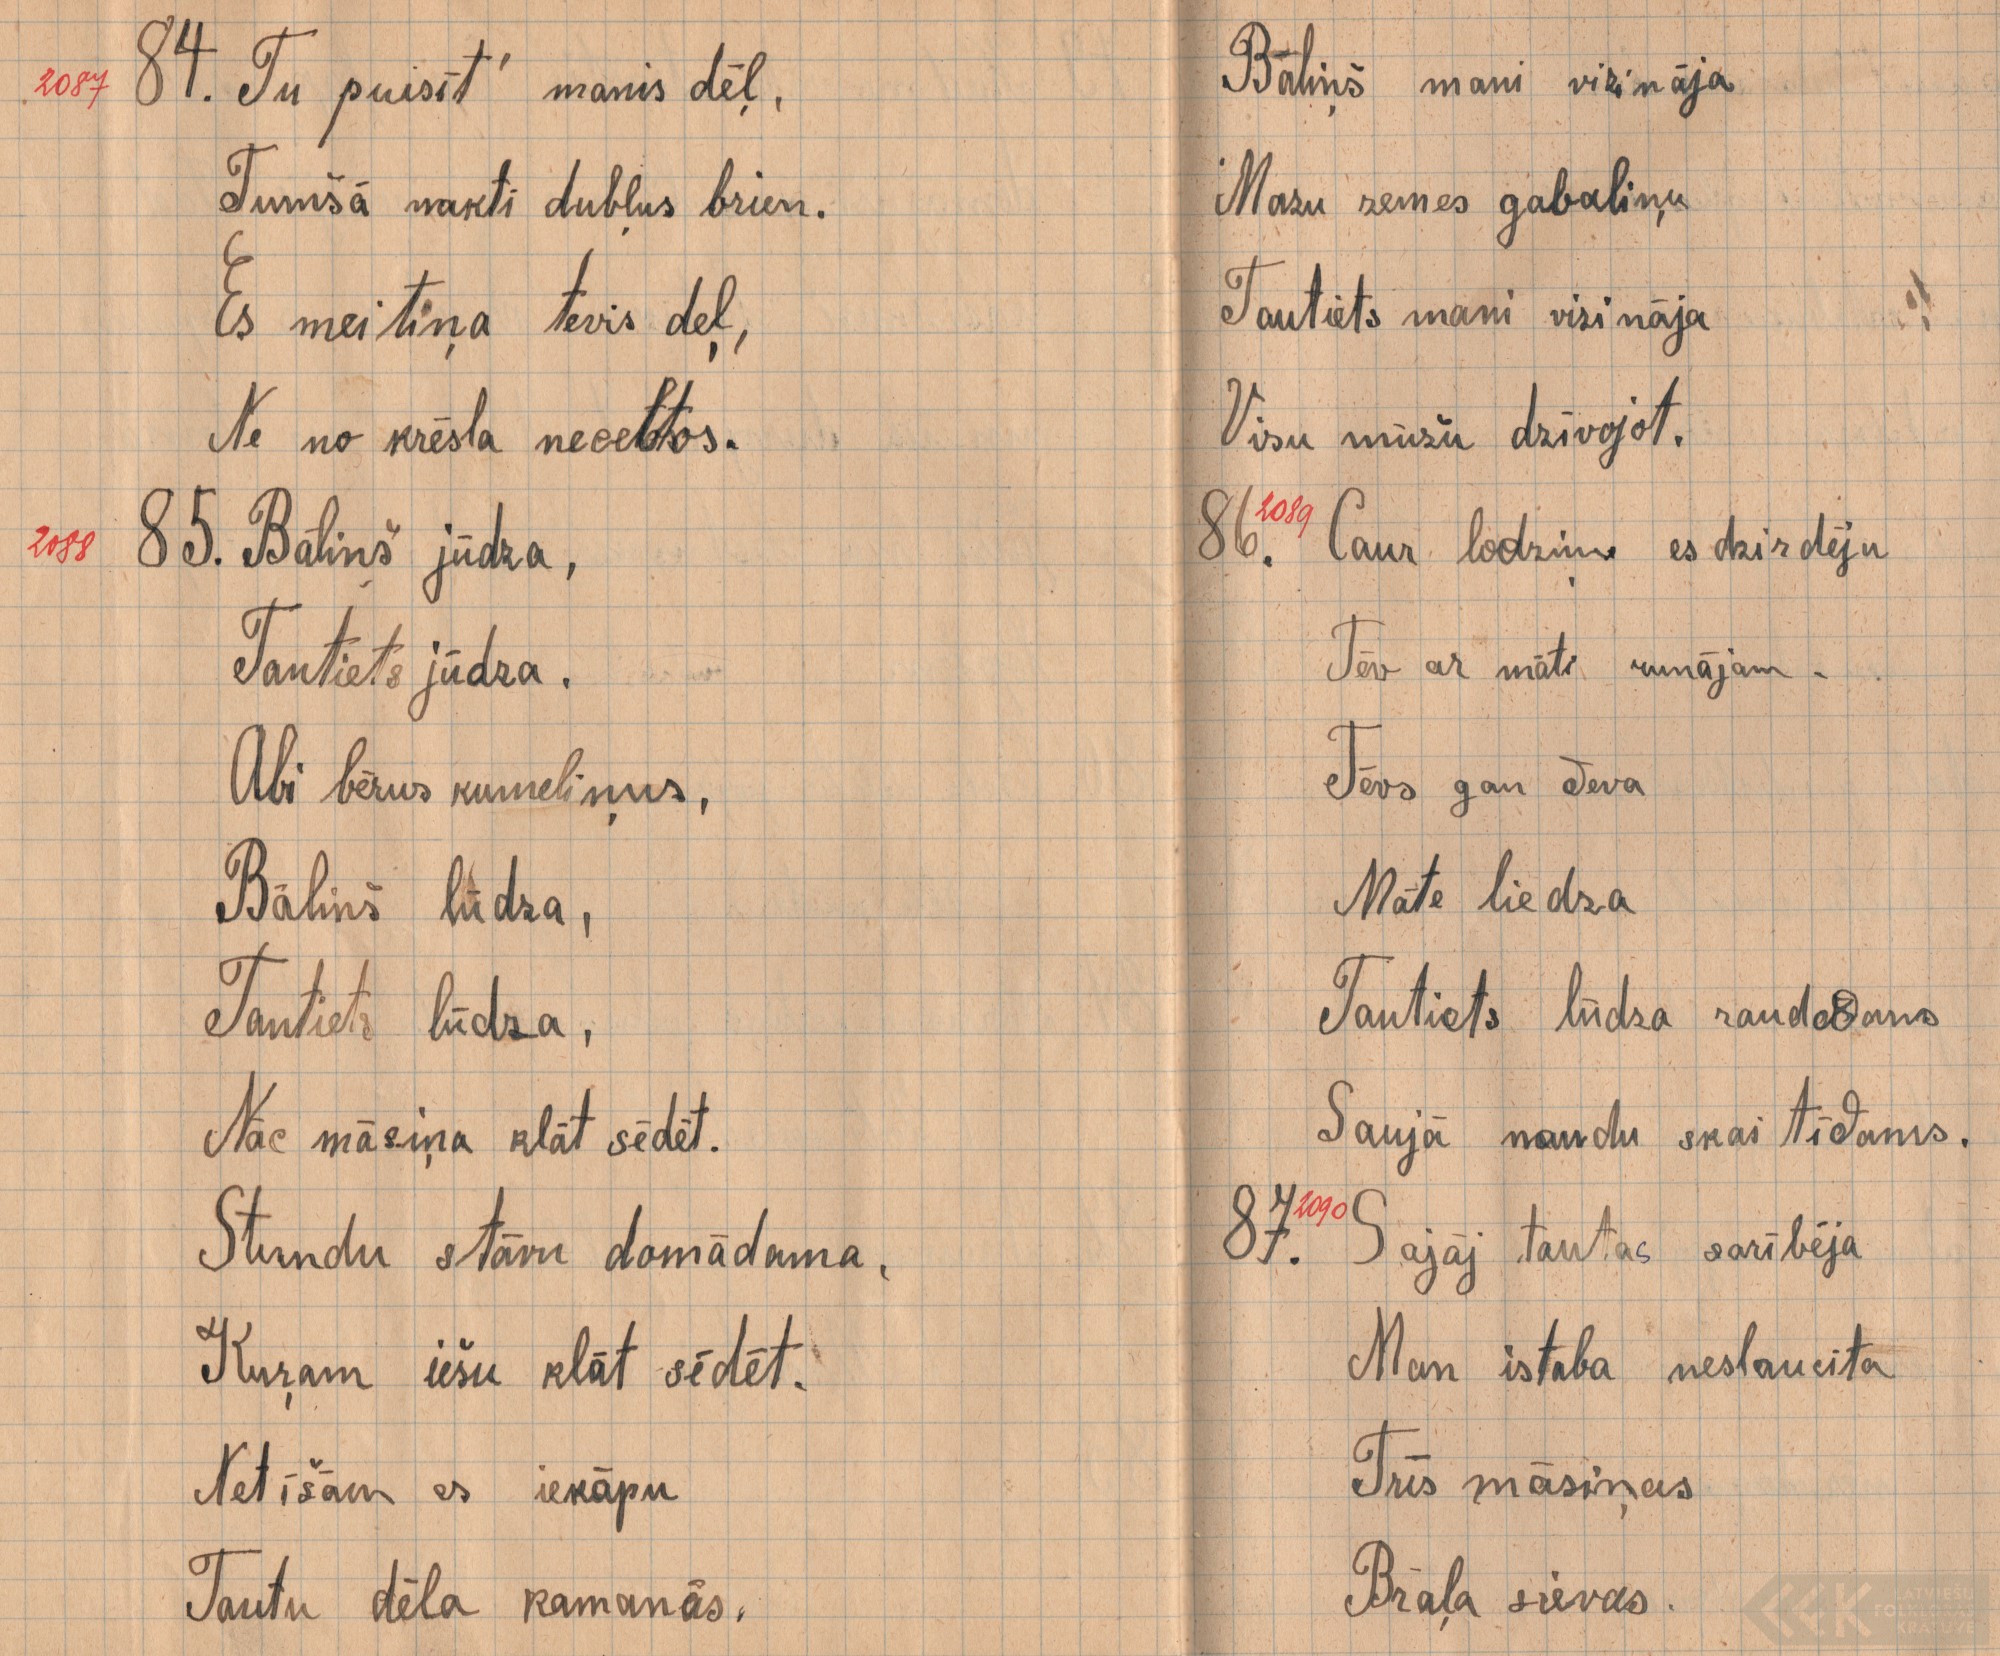 2087 84. Tu puisīt' manis dēļ,
Tumšā naktī dubļus brien.
Es meitiņa tevis deļ,
Ne no krēsla neceltos.
2088 85. Bāliņš jūdza,
Tautiets jūdza.
Abi bērus kumeliņus,
Bāliņš lūdza,
Tautiets lūdza,
Nāc māsiņa klāt sēdēt.
Stundu stāvu domādama,
Kuŗam iešu klāt sēdēt.
Netīšām es iekāpu
Tautu dēla kamanās.
Bāliņš mani vizināja
Mazu zemes gabaliņu
Tautiets mani vizināja
Visu mūžu dzīvojot.
86. 2089 Caur lodziņu es dzirdēju
Tēv ar māti runājam.
Tēvs gan deva
Māte liedza
Tautiets lūdza raudādams
Saujā naudu skaitīdams.
87. 2090 Sajāj tautas sarībēja
Man istaba neslaucīta
Trīs māsiņas
Brāļa sievas.
LATVIEŠU
FOLKLORAS
KRĀTUVE